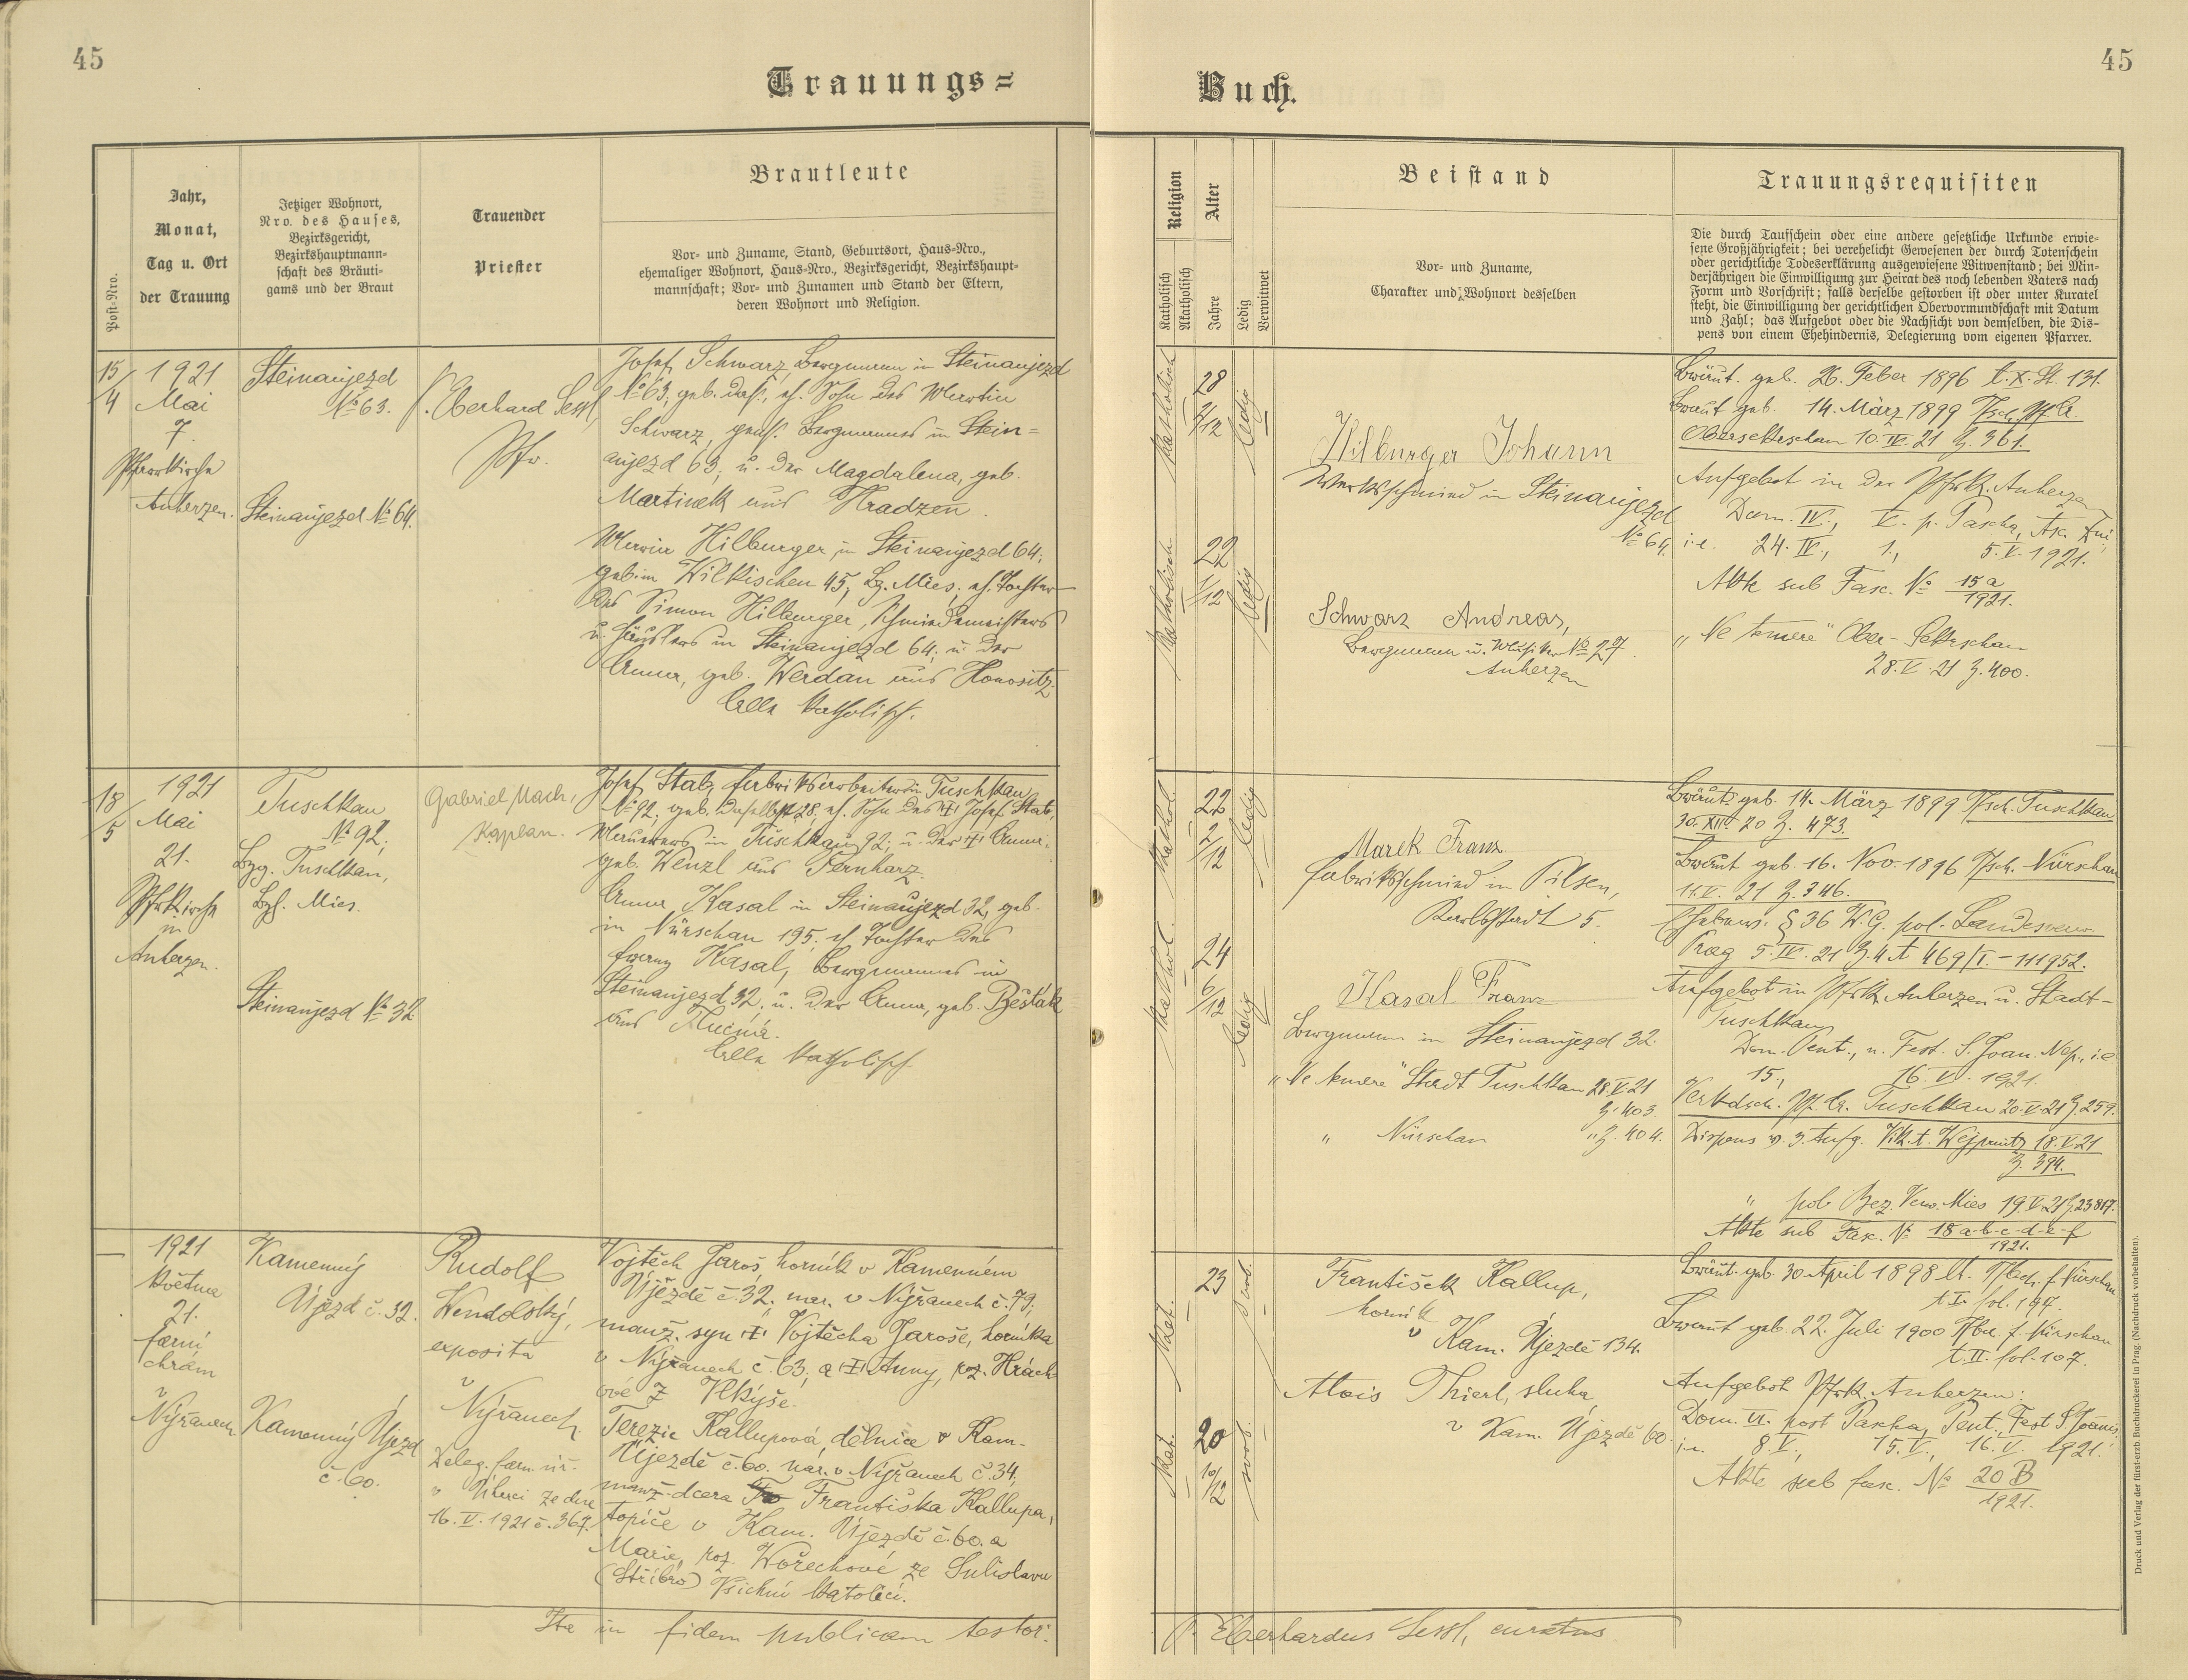 45
Trauungs=
Post-Nro.
Jahr,
Monat,
Tag u. Ort
der Trauung
Jetziger Wohnort,
Nro. des Hauses,
Bezirksgericht,
Bezirkshauptmann-
schaft des Bräuti-
gams und der Braut
Trauender
Priester
Brautleute
Vor- und Zuname, Stand, Geburtsort, Haus-Nro.,
ehemaliger Wohnort, Haus-Nro., Bezirksgericht, Bezirkshaupt-
mannschaft; Vor- und Zunamen und Stand der Eltern,
deren Wohnort und Religion.
15/4
1921
Mai
7.
Pfarrkirche
Auherzen.
Steinaujezd
No 63.
Steinaujezd No 64.
P. Eberhard Sessl,
Pfr.
Josef Schwarz, Bergmann in Steinaujezd
No 63, geb. das., eh. Sohn des Martin
Schwarz, gens. Bergmannes in Stein=
aujezd 63; u. der Magdalena, geb.
Martinek aus Hradzen.
Maria Hilburger in Steinaujezd 64;
geb. in Wilkischen 45, Bz. Mies; eh. Tochter
des Simon Hilburger, Schmiedemeisters
u. Häuslers in Steinaujezd 64; u. der
Anna, geb. Werdan aus Honositz.
Alle katholisch.
18/5
1921
Mai
21.
Pfrkirche
in
Auherzen.
Tuschkau
No 92;
Bzg. Tuschkau,
Bzh. Mies.
Steinaujezd No 32
Gabriel Mach,
Kaplan.
Josef Stab, Fabriksarbeiter in Tuschkau
No 92; geb. daselbst 28; eh. Sohn des † Josef Stab,
Maurers in Tuschkau 92; u. der † Anna,
geb. Wenzl aus Pernharz.
Anna Kasal in Steinaujezd 32, geb.
in Nürschan 195; eh. Tochter des
Franz Kasal, Bergmannes in
Steinaujezd 32; u. der Anna, geb. Běšťak
aus
Alle katholisch
—
1921
května
21.
farní
chrám
v
Nýřanech
Kamenný
Újezd č. 32.
Kamenný Újezd
č. 60.
Rudolf
Wendolský,
exposita
v
Nýřanech.
Deleg. farn. úř.
v Úherci ze dne
16. V. 1921 č. 367.
Vojtěch Jaroš, horník v Kamenném
Újezdě č. 32; nar. v Nýřanech č. 79;
manž. syn † Vojtěcha Jaroše, horníka
v Nýřanech č. 63; a † Anny, roz. Hrách-
ové z Vlkýše.
Terezie Kallupová, dělnice v Kam.
Újezdě č. 60. nar. v Nýřanech č. 34;
manž. dcera Františka Kallupa,
topiče v Kam. Újezdě č. 60. a
Marie, roz. Wořechové ze Sulislavu
(Stříbro) Všichni katolíci.
Ita in fidem publicam testor:
45
Buch.
Religion
Katholisch
Akatholisch
Alter
Jahre
Ledig
Verwitwet
Beistand
Vor- und Zuname,
Charakter und Wohnort desselben
Trauungsrequisiten
Die durch Taufschein oder eine andere gesetzliche Urkunde erwie-
sene Großjährigkeit; bei verehelicht Gewesenen der durch Totenschein
oder gerichtliche Todeserklärung ausgewiesene Witwenstand; bei Min-
derjährigen die Einwilligung zur Heirat des noch lebenden Vaters nach
Form und Vorschrift; falls derselbe gestorben ist oder unter Kuratel
steht, die Einwilligung der gerichtlichen Obervormundschaft mit Datum
und Zahl; das Aufgebot oder die Nachsicht von demselben, die Dis-
pens von einem Ehehindernis, Delegierung vom eigenen Pfarrer.
katholisch
28 2/12
ledig
katholisch
22 1/12
ledig
Hilburger Johann
Werksschmied in Steinaujezd
No 64.
Schwarz Andreas,
Bergmann u. No 27.
Auherzen
Bräut. geb. 26. Feber 1896 t. X. St. 131.
Braut geb. 14. März 1899 Tfsch. Pf. A.
Obersekerschan 10. IV. 21 Z. 361.
Aufgebot in der Pfrk. Auherzen
Dom. IV., V. p. Pascha, Asc. Dni;
i. e. 24. IV., 1., 5. V. 1921.
Akte sub Fasc. No 15a/1921.
„Ne temere" Ober-Sekerschan
28. V. 21 Z. 400.
kathol.
22 2/12
ledig
kathol.
24 6/12
ledig
Marek Franz
Fabriksschmied in Pilsen,
Karlsstadt 5.
Kasal Franz
Bergmann in Steinaujezd 32.
„Ne temere" Stadt Tuschkau 28. V. 21
Z. 403.
„ Nürschan „ Z. 404.
Bräut. geb. 14. März 1899 Tfsch. Tuschkau
30. XII. 20 Z. 473.
Braut geb. 16. Nov. 1896 Tfsch. Nürschan
11. V. 21 Z. 346.
Ehebew. § 36 W. G. pol. Landesverw.
Prag 5. IV. 21 Z. 4 A 469/I. - 111952.
Aufgebot in Pfrk. Auherzen u. Stadt-
Tuschkau
Dom. Pent., u. Fest. S. Joan. Nep., i. e.
15., 16. V. 1921.
Verkdsch. Pf. A. Tuschkau 20. V. 21 Z. 259.
Dispens v. 3. Aufg. Vik. A. Wejprnitz 18. V. 21
Z. 394.
„ pol. Bez. Verw. Mies 19. V. 21 Z. 23817.
Akte sub Fasc. No 18 a-b-c-d-e-f/1921.
kat.
23
svob.
kat.
20 10/12
svob.
František Kallup,
horník
v Kam. Újezdě 134.
Alois Thierl, sluha,
v Kam. Újezdě 60.
Bräut. geb. 30. April 1898 lt. Tfbch. f. Nürschan
t. I. fol. 197.
Braut geb. 22. Juli 1900 Tfbu. f. Nürschan
t. II. fol. 107.
Aufgebot Pfrk. Auherzen:
Dom. VI. post Pascha, Pent., Fest S. Joanis,
i. e. 8. V., 15. V., 16. V. 1921.
Akte sub fasc. No 20 B/1921.
P. Eberhardus Sessl, curatus
Druck und Verlag der fürst-erzb. Buchdruckerei in Prag. (Nachdruck vorbehalten).